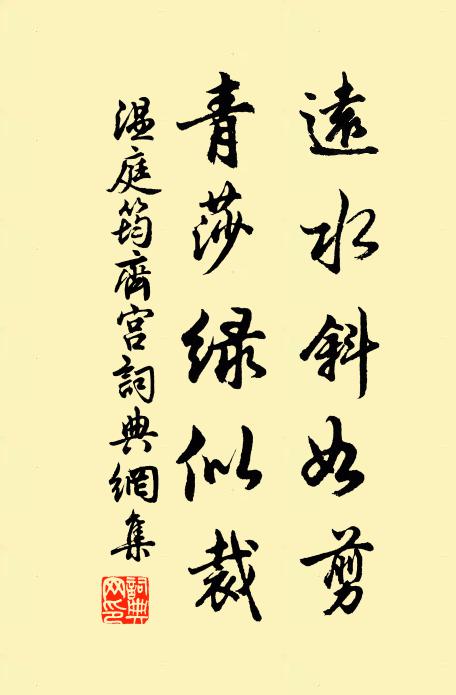 遠水斜如剪
青莎绿似裁
温庭筠齋宫詞典網集
詞典網印